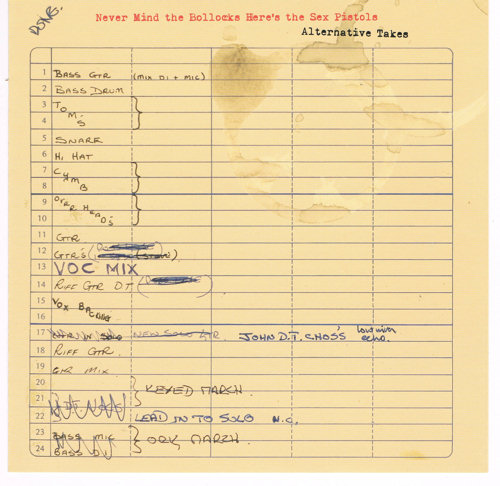 DONE.
Never Mind the Bollocks Here's the Sex Pistols
Alternative Takes
1 BASS GTR (MIX DI + MIC)
2 BASS DRUM
3 TOM'S
4
5 SNARE
6 HI HAT
7 CYMB
8
9 OVER HEAD'S
10
11 GTR
12 GTR'S
13 VOC MIX
14 RIFF GTR DT
15 VOX BACKING
16
17 NEW SOLO GTR. JOHN D.T. CHOS'S low with echo.
18 RIFF GTR.
19 GTR MIX
20 KEYED MARCH.
21
22 LEAD IN TO SOLO N.C.
23 BASS MIC ORK MARCH.
24 BASS DI